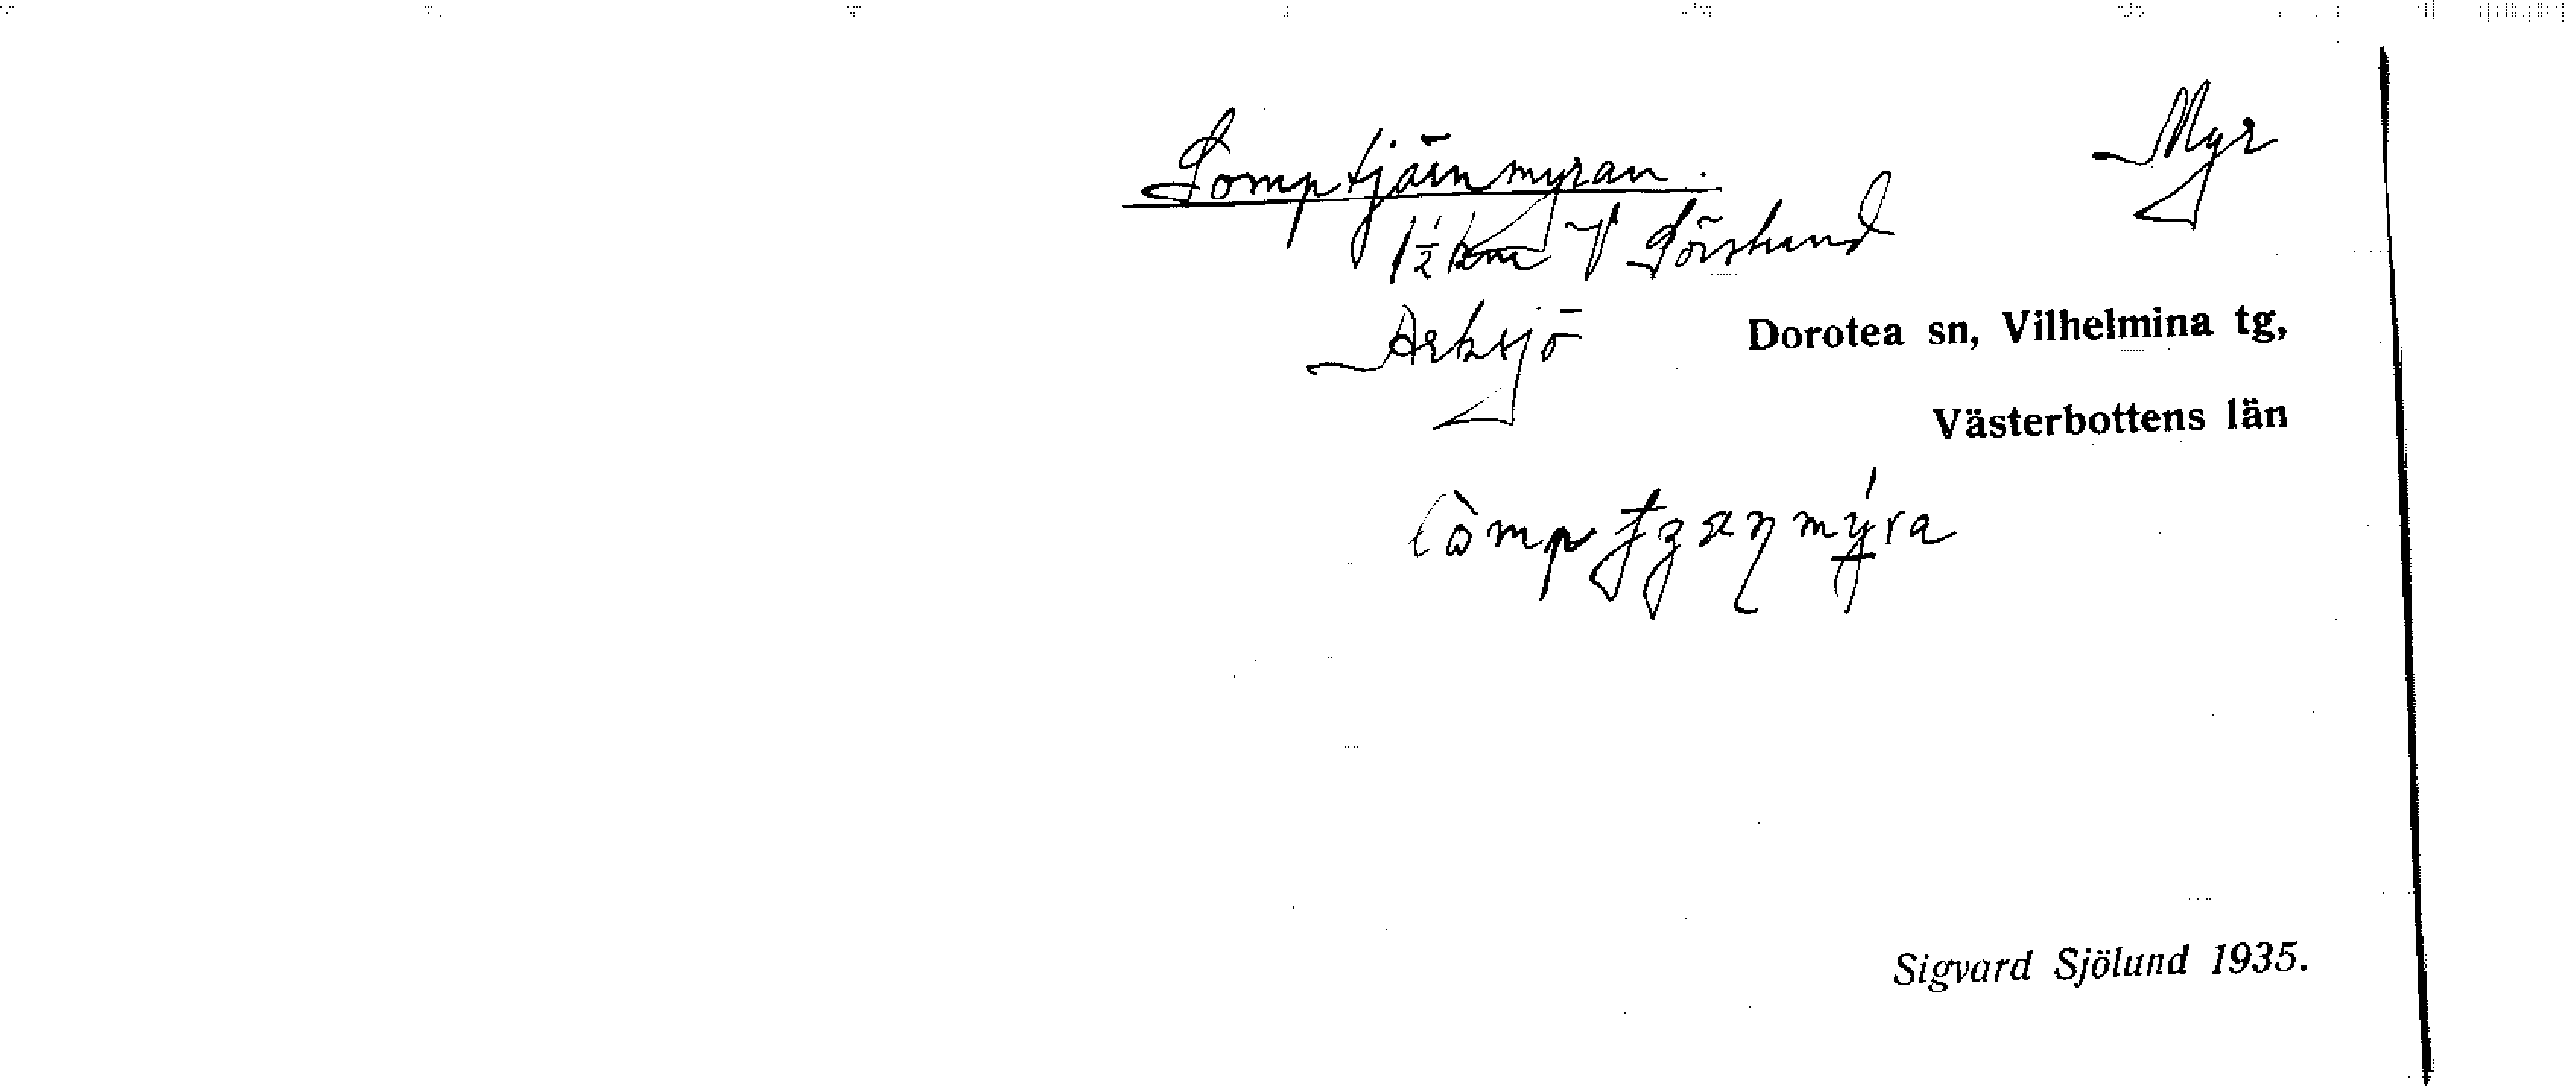 Lomptjärnmyran. Myr
1½ km V Lövstrand
Arksjö Dorotea sn, Vilhelmina tg,
Västerbottens län
Sigvard Sjölund 1935.